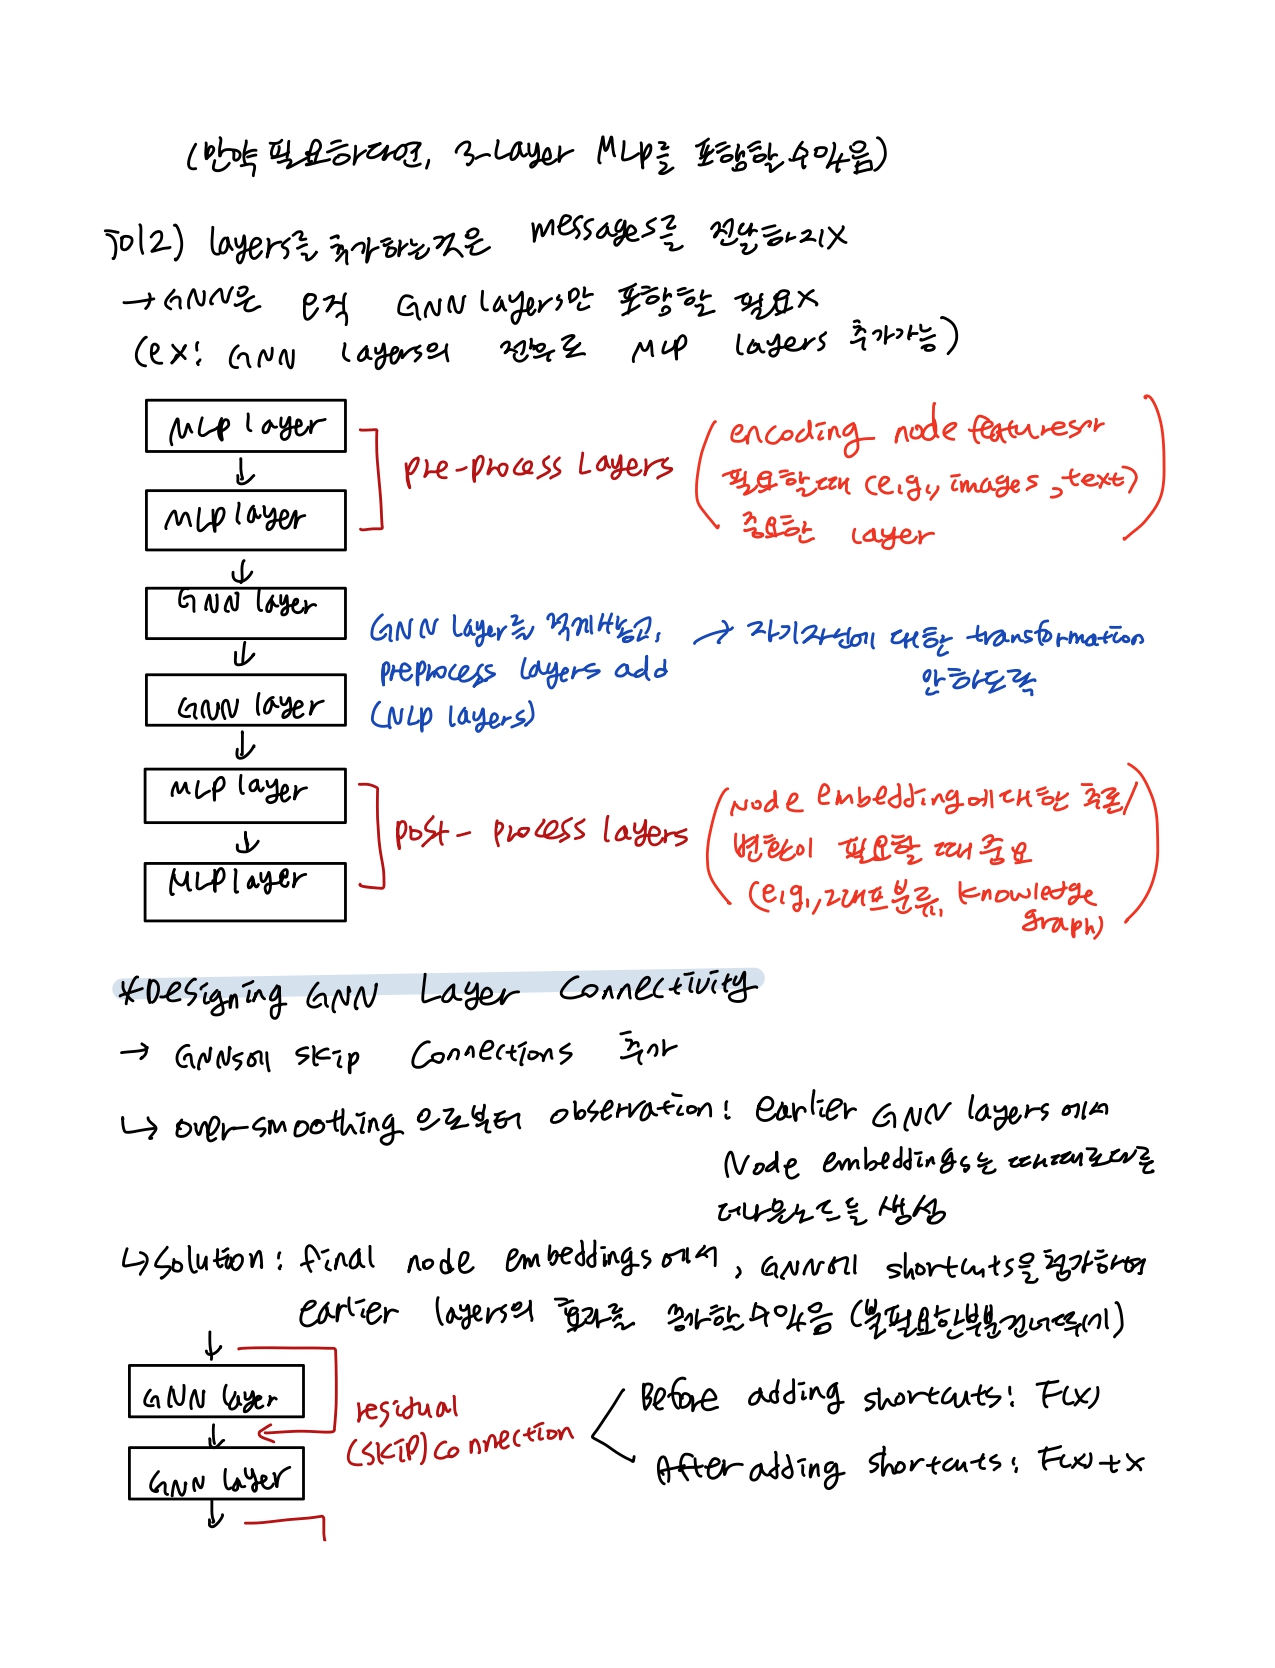 (만약 필요하다면, 3-Layer MLP를 포함할 수 있음)
layers를 추가하는 것은 messages를 전달하지X
→ GNN은 오직 GNN layers만 포함할 필요X
(ex: GNN layers의 전후로 MLP layers 추가가능)
MLP layer
MLP layer
pre-process layers
(encoding node features가
필요할 때 (e.g., images, text)
중요한 layer
GNN layer
GNN layer
GNN layer를 적게쌓고,
preprocess layers add
(NLP layers)
→ 자기자신에 대한 transformation
안하도록
MLP layer
MLP layer
post-process layers
(Node embedding에 대한 추론/
변환이 필요할 때 중요
(e.g., 그래프분류, knowledge
graph)
*Designing GNN Layer Connectivity
→ GNNs에 skip connections 추가
↳ over-smoothing으로부터 observation: earlier GNN layers에서
Node embeddings는 때때로 다른
노드들 생성
↳ solution: final node embeddings에서, GNN에 shortcuts을 첨가하여
earlier layers의 효과를 증가할 수 있음 (불필요한부분건너뛰기)
GNN layer
GNN layer
residual
(skip) connection
Before adding shortcuts: F(x)
After adding shortcuts: F(x)+x